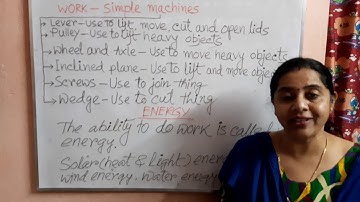 WORK - Simple machines
Lever - Use to lift, move, cut and open lids
Pulley - Use to lift heavy objects
Wheel and Axle - Use to move heavy objects
Inclined plane - Use to lift and move objects
Screws - Use to join thing
Wedge - Use to cut thing
ENERGY
The ability to do work is called
energy.
Solar (heat & light) energy
wind energy, water energy